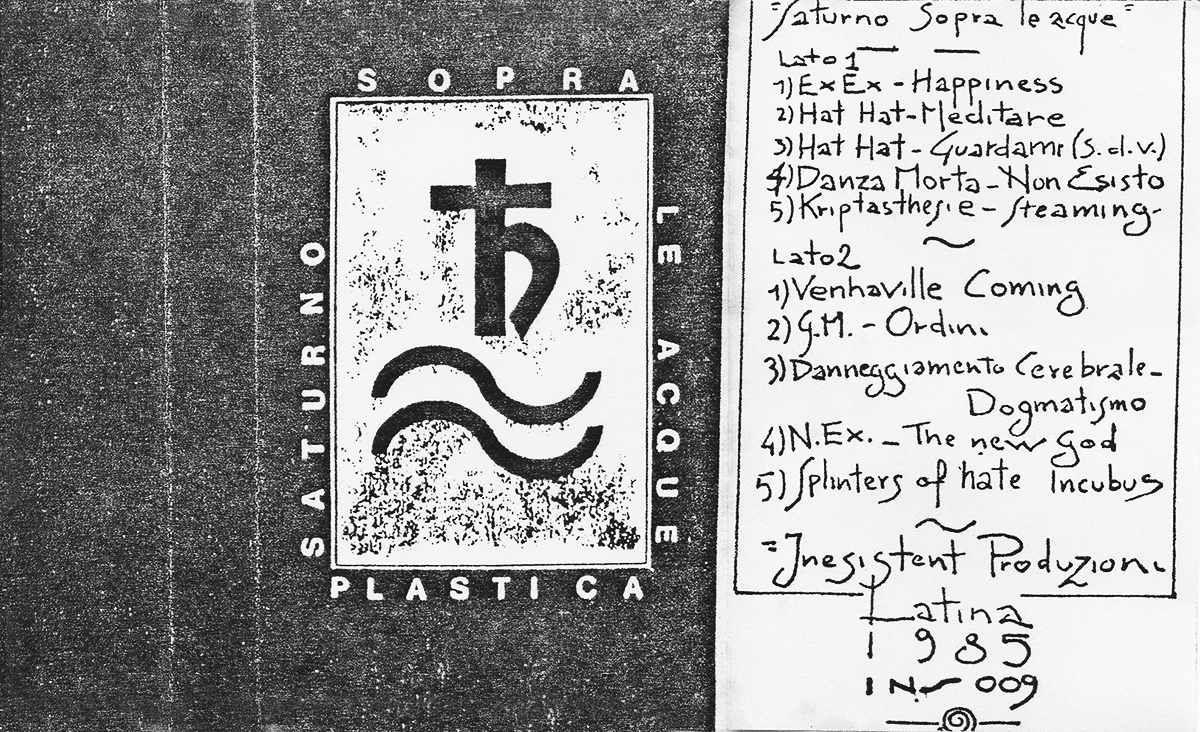 SOPRA
SATURNO
LE ACQUE
PLASTICA
"Saturno Sopra le acque"
Lato 1
1) Ex Ex - Happiness
2) Hat Hat - Meditare
3) Hat Hat - Guardami (s.d.v.)
4) Danza Morta - Non Esisto
5) Kriptasthesie - Steaming-
~
Lato 2
1) Venhaville Coming
2) G.M. - Ordini
3) Danneggiamento Cerebrale-
Dogmatismo
4) N.Ex. - The new God
5) Splinters of hate Incubus
~
"Inesistent Produzioni
Latina
1985
INS 009